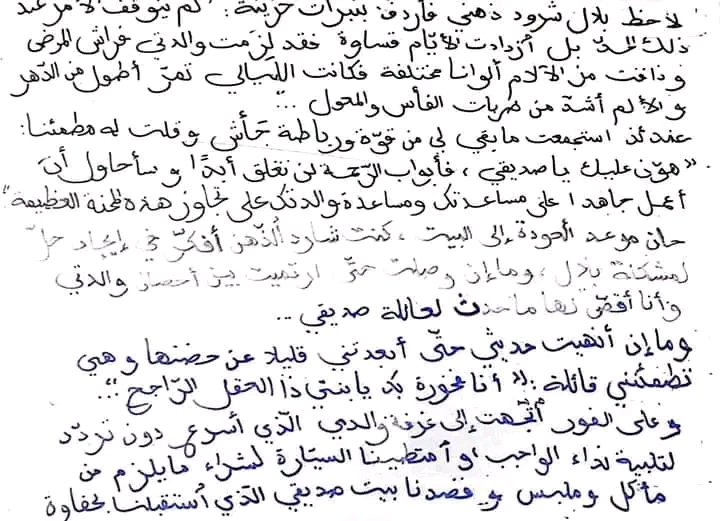 لاحظ بلال شرود ذهني فأردف بنبرات حزينة: " لم يتوقف الأمر عند
ذلك الحدّ بل أزدادت الأيّام قساوة فقد لزمت والدتي فراش المرض
و ذاقت من الآلام ألوانا مختلفة فكانت اللّيالي تمرّ أطول من الدّهر
و الألم أشدّ من ضربات الفأس والمعول ..."
عندئذ استجمعت ما بقي لي من قوّة ورباطة جأش و قلت له مطمئنا:
« هوّن عليك يا صديقي ، فأبواب الرّحمة لن تغلق أبدًا و سأحاول أن
أعمل جاهدا على مساعدتك ومساعدة والدتك على تجاوز هذه المحنة العظيمة"
حان موعد العودة إلى البيت ، كنت شارد الذّهن أفكّر في إيجاد حلّ
لمشكلة بلال ، وما إن وصلت حتّى ارتميت بين أحضان والدتي
و أنا أقصّ لها ما حدث لعائلة صديقي ...
وما إن أنهيت حديثي حتّى أبعدتني قليلا عن حضنها و هي
تطمئنني قائلة : " أنا فخورة بك يا بنتي ذا العقل الرّاجح "..
و على الفور أتّجهت إلى غرفة والدي الّذي أسرع دون تردّد
لتلبية نداء الواجب و أمتطينا السيّارة لشراء ما يلزم من
مأكل وملبس و قصدنا بيت صديقي الّذي أستقبلنا بحفاوة